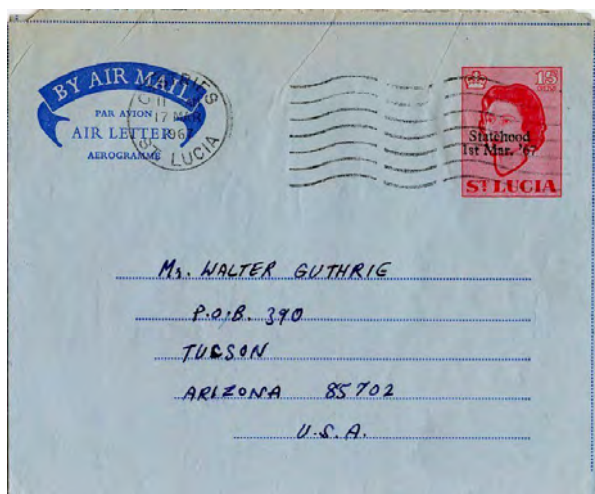 BY AIR MAIL
PAR AVION
AIR LETTER
AEROGRAMME
CASTRIES
11
17 MAR
1967
ST. LUCIA
15
Statehood
1st Mar. '67
ST LUCIA
Mr. WALTER GUTHRIE
P.O.B. 390
TUCSON
ARIZONA 85702
U.S.A.